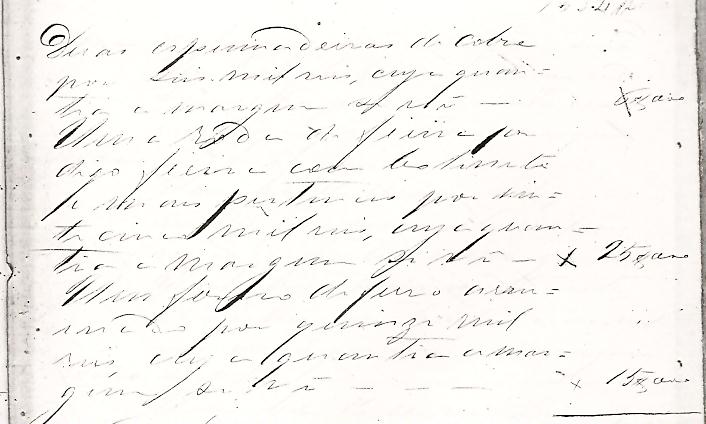 Duas espumadeiras de Cobre
por seis mil reis, cuja quan=
tia a margem se vê —
6$000
Uma roda de fiar
digo
e mais pertences por vin=
te cinco mil reis, cuja quan=
tia a margem se vê — x 25$000
Um forno de ferro arru=
inado por quinze mil
reis, cuja quantia a mar=
gem se vê — — — x 15$000